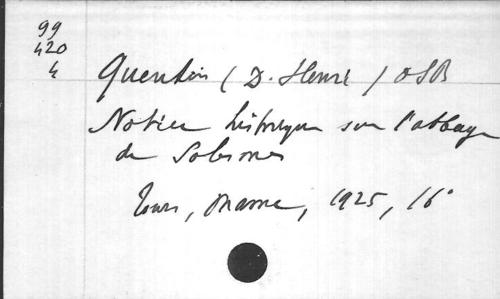 99
420
4
Quentin ( D. Henri ) OSB
Notice historique sur l'abbaye
de Solesmes
Tours, Mame, 1925, 16°